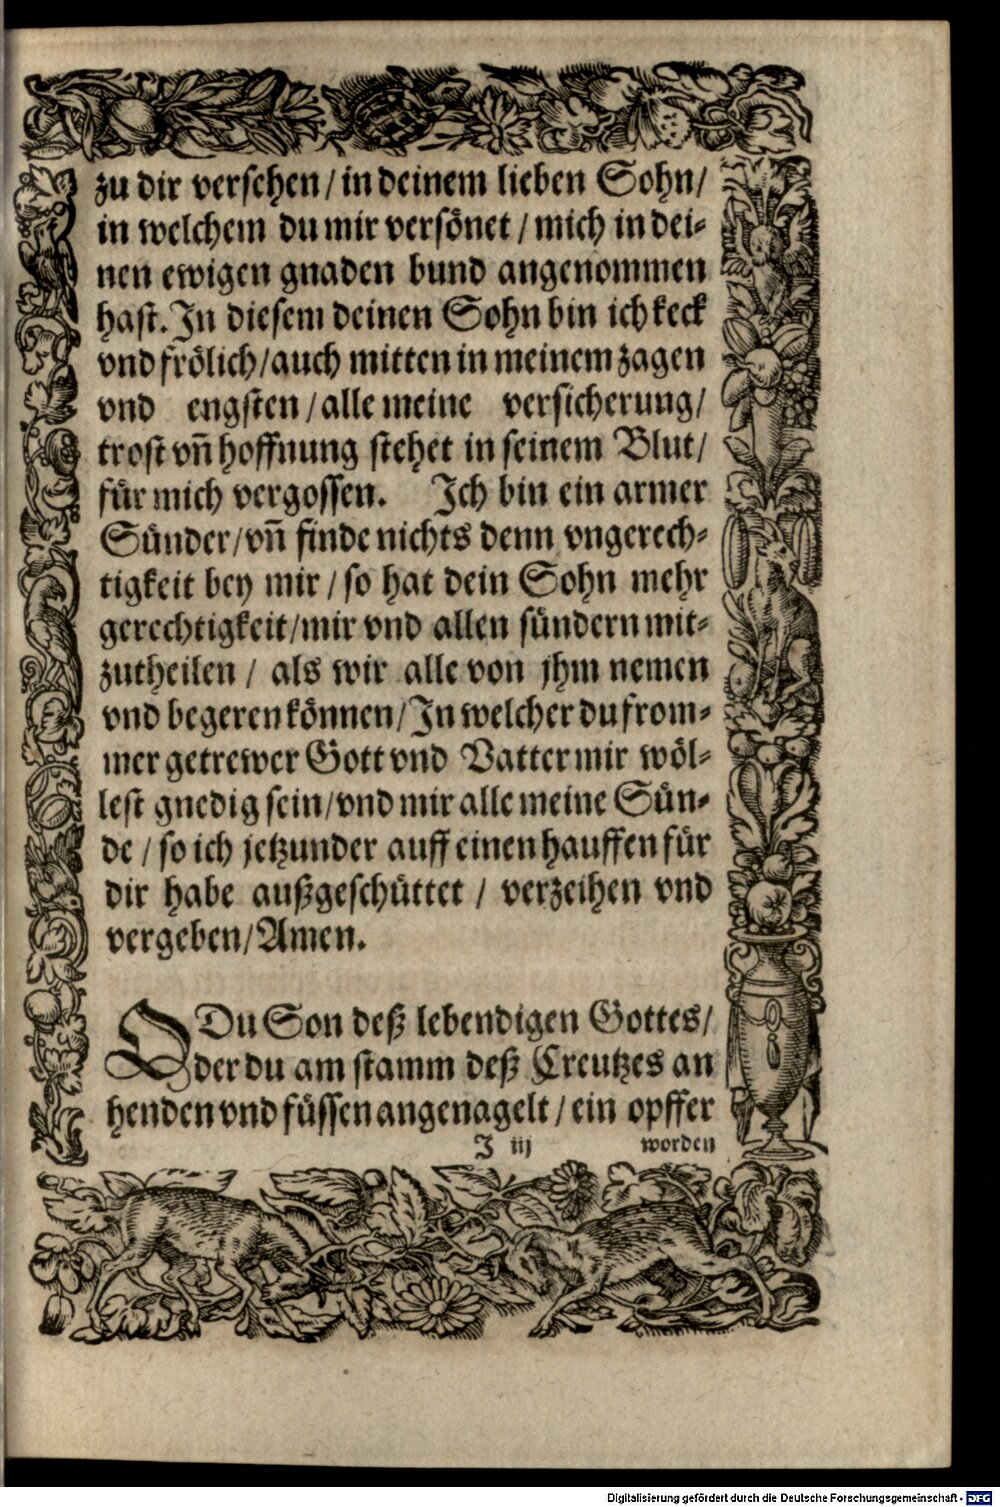 zu dir versehen / in deinem lieben Sohn /
in welchem du mir versönet / mich in dei-
nen ewigen gnaden bund angenommen
hast. In diesem deinen Sohn bin ich keck
vnd frölich / auch mitten in meinem zagen
vnd engsten / alle meine versicherung /
trost vñ hoffnung stehet in seinem Blut /
für mich vergossen. Ich bin ein armer
Sünder / vñ finde nichts denn vngerech-
tigkeit bey mir / so hat dein Sohn mehr
gerechtigkeit / mir vnd allen sündern mit-
zutheilen / als wir alle von jhm nemen
vnd begeren können / In welcher du from-
mer getrewer Gott vnd Vatter mir wöl-
lest gnedig sein / vnd mir alle meine Sün-
de / so ich jetzunder auff einen hauffen für
dir habe außgeschüttet / verzeihen vnd
vergeben / Amen.
O Du Son deß lebendigen Gottes /
der du am stamm deß Creutzes an
henden vnd füssen angenagelt / ein opffer
J iij worden
Digitalisierung gefördert durch die Deutsche Forschungsgemeinschaft - DFG